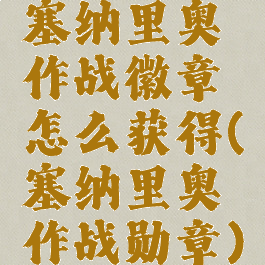 塞纳里奥
作战徽章
怎么获得(
塞纳里奥
作战勋章)